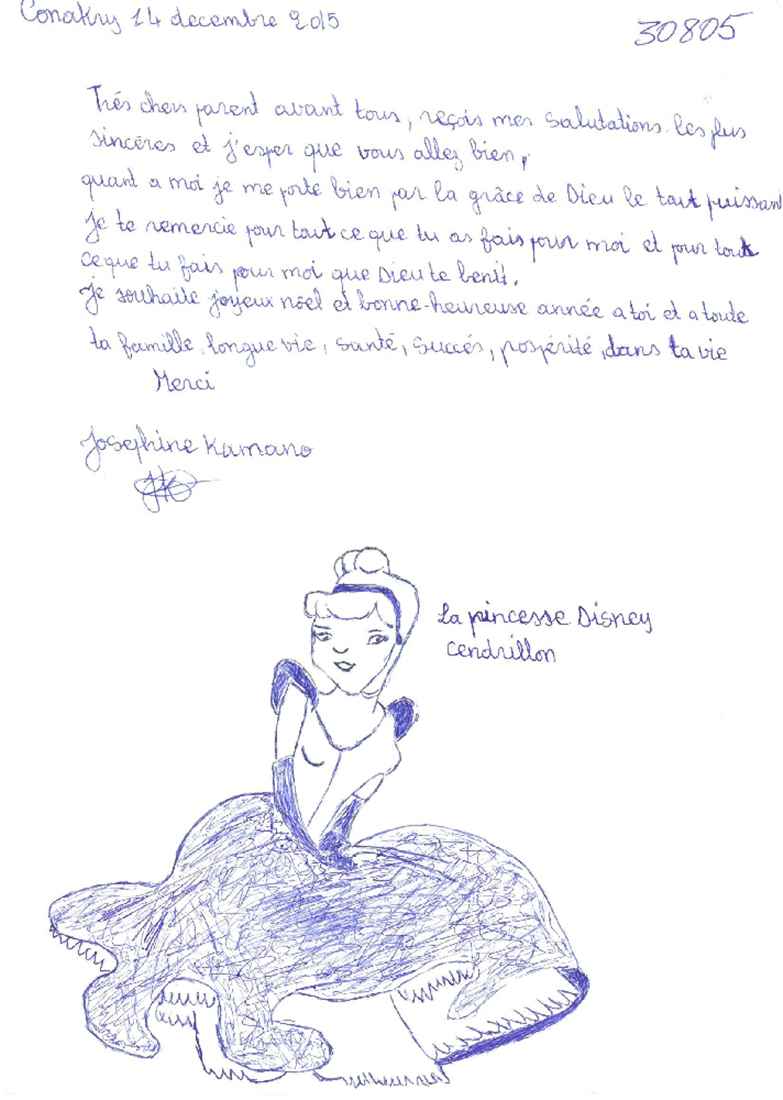 Conakry 14 decembre 2015
30805
Trés chers parent avant tous, reçois mes salutations les plus
sincères et j'esper que vous allez bien,
quant a moi je me porte bien par la grâce de Dieu le tout puissant
je te remercie pour tout ce que tu as fais pour moi et pour tout
ce que tu fais pour moi que Dieu te benit.
je souhaite joyeux noel et bonne-heureuse année a toi et a toute
ta famille. longue vie, santé, succés, prospérité, dans ta vie
Merci
Josephine Kamano
La pincesse Disney
cendrillon